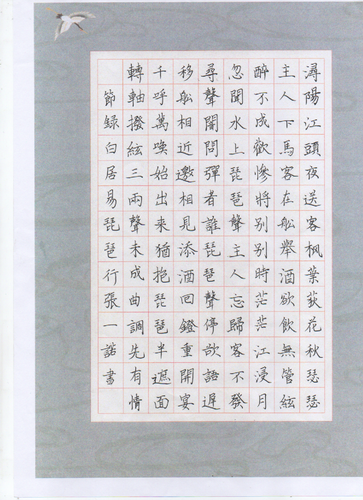 潯陽江頭夜送客楓葉荻花秋瑟瑟
主人下馬客在船舉酒欲飲無管絃
醉不成歡慘將別別時茫茫江浸月
忽聞水上琵琶聲主人忘歸客不發
尋聲闇問彈者誰琵琶聲停欲語遲
移船相近邀相見添酒回鐙重開宴
千呼萬喚始出來猶抱琵琶半遮面
轉軸撥絃三兩聲未成曲調先有情
節録白居易琵琶行張一諾書